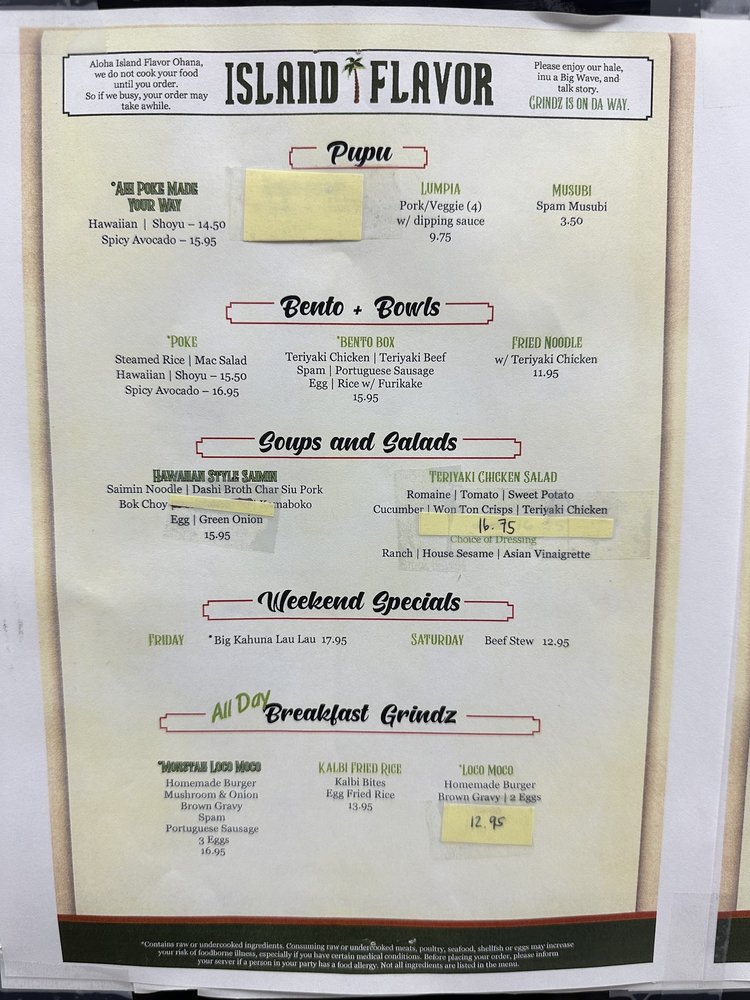 Aloha Island Flavor Ohana,
we do not cook your food
until you order.
So if we busy, your order may
take awhile.
ISLAND FLAVOR
Please enjoy our hale,
inu a Big Wave, and
talk story.
GRINDZ IS ON DA WAY.
Pupu
*AHI POKE MADE
YOUR WAY
Hawaiian | Shoyu – 14.50
Spicy Avocado – 15.95
LUMPIA
Pork/Veggie (4)
w/ dipping sauce
9.75
MUSUBI
Spam Musubi
3.50
Bento + Bowls
*POKE
Steamed Rice | Mac Salad
Hawaiian | Shoyu – 15.50
Spicy Avocado – 16.95
*BENTO BOX
Teriyaki Chicken | Teriyaki Beef
Spam | Portuguese Sausage
Egg | Rice w/ Furikake
15.95
FRIED NOODLE
w/ Teriyaki Chicken
11.95
Soups and Salads
HAWAIIAN STYLE SAIMIN
Saimin Noodle | Dashi Broth Char Siu Pork
Bok Choy
Egg | Green Onion
15.95
TERIYAKI CHICKEN SALAD
Romaine | Tomato | Sweet Potato
Cucumber | Won Ton Crisps | Teriyaki Chicken
16.75
Choice of Dressing
Ranch | House Sesame | Asian Vinaigrette
Weekend Specials
FRIDAY *Big Kahuna Lau Lau 17.95
SATURDAY Beef Stew 12.95
All Day Breakfast Grindz
*MONSTAH LOCO MOCO
Homemade Burger
Mushroom & Onion
Brown Gravy
Spam
Portuguese Sausage
3 Eggs
16.95
KALBI FRIED RICE
Kalbi Bites
Egg Fried Rice
13.95
*LOCO MOCO
Homemade Burger
Brown Gravy | 2 Eggs
12.95
*Contains raw or undercooked ingredients. Consuming raw or undercooked meats, poultry, seafood, shellfish or eggs may increase
your risk of foodborne illness, especially if you have certain medical conditions. Before placing your order, please inform
your server if a person in your party has a food allergy. Not all ingredients are listed in the menu.